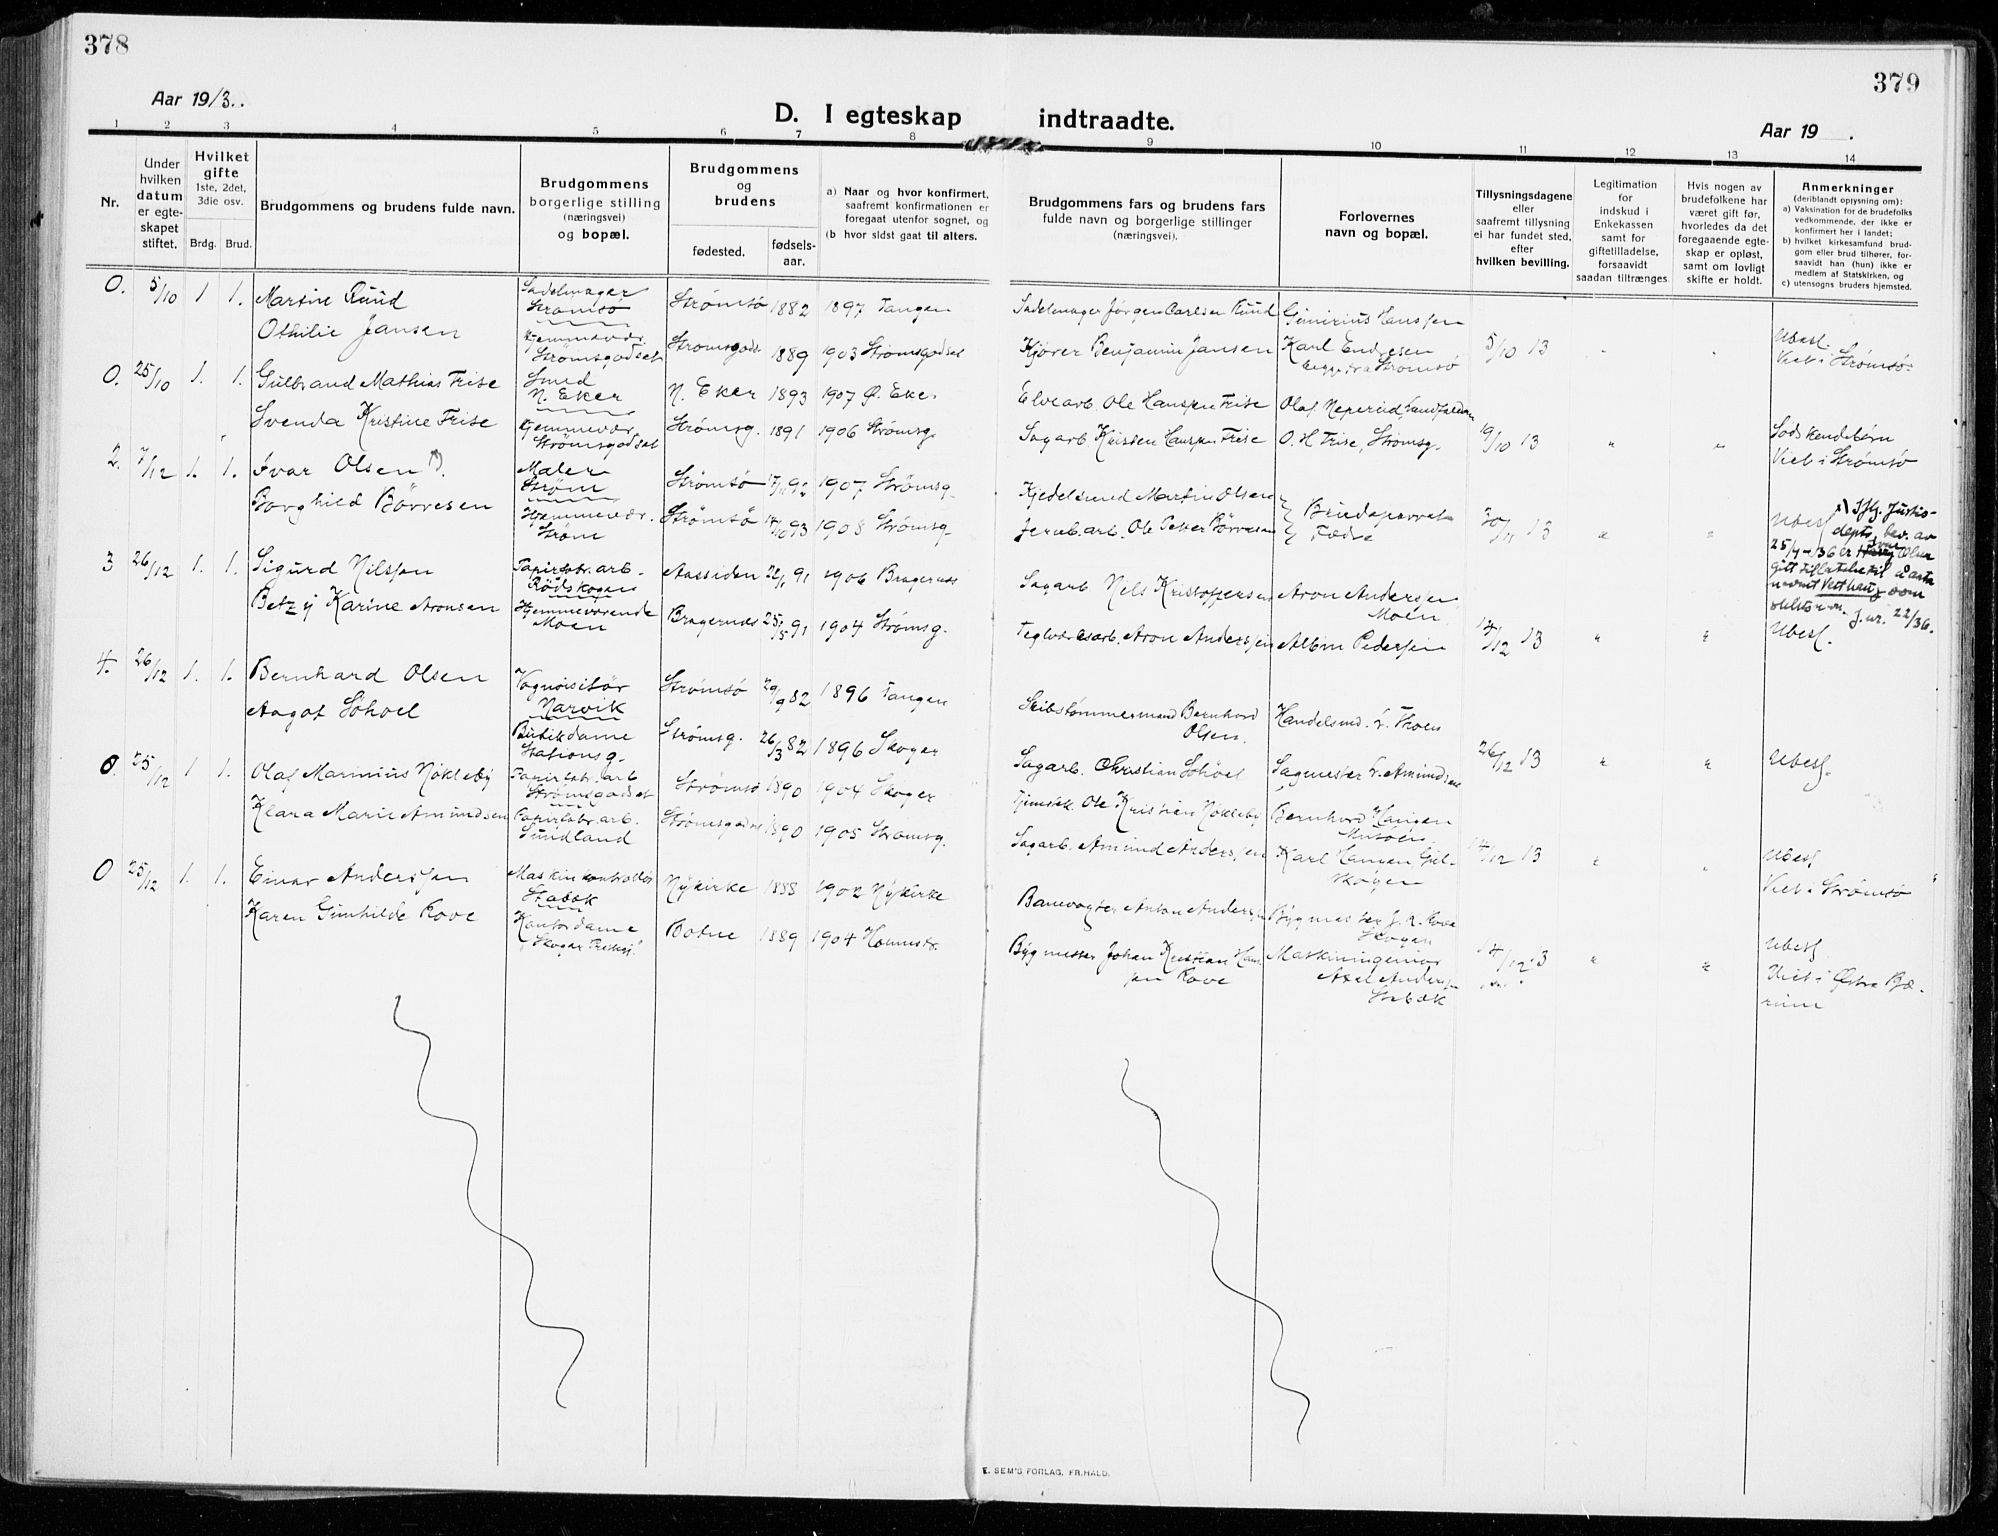 378
Aar 1913.
D. I egteskap
1 2 3 4 5 6 7 8
Nr.
Under hvilken datum er egteskapet stiftet.
Hvilket gifte 1ste, 2det, 3die osv.
Brdg. Brud.
Brudgommens og brudens fulde navn.
Brudgommens borgerlige stilling (næringsvei) og bopæl.
Brudgommens og brudens
fødested. fødselsaar.
a) Naar og hvor konfirmert, saafremt konfirmationen er foregaat utenfor sognet, og
(b hvor sidst gaat til alters.
0. 5/10 1 1. Martin Ruud Sadelmager Strømsø Strømsø 1882 1897 Tangen
Othilie Jansen Hjemmevær. Strømsgodset Strømsgods 1889 1903 Strømsgodset
0. 25/10 1. 1. Gulbrand Mathias Frise Smed N. Eker N. Eker 1893 1907 Ø. Eker
Svenda Kristine Frise Hjemmevær. Strømsgodset Strømsg. 1891 1906 Strømsg.
2. 7/12 1. 1. Ivar Olsen Maler Strøm Strømsø 1907 Strømsg.
Borghild Børresen Hjemmevær. Strøm Strømsø 1908 Strømsg.
3 26/12 1. 1. Sigurd Nilssen Papirfabr.arb. Rødskogen Aassiden 1906 Bragernæs
Betzy Karine Aronsen Hjemmeværende Moen Bragernæs 25/5 91 1904 Strømsg.
4. 26/12 1. 1. Bernhard Olsen Vognvisitør Narvik Strømsø 29/9 82 1896 Tangen
Aagot Søhol Butikdame Stationsg. Strømsg. 26/3 82 1896 Skoger
0. 25/12 1 1. Olaf Marinius Nøkleby Papirfabr.arb Strømsgodset Strømsø 1890 1904 Skoger
Klara Marie Amundsen Papirfabr.arb. Sundland Strømsgodset 1890 1905 Strømsg.
0 25/12 1. 1. Einar Anderssen Maskinkontrollør Stabæk Nykirke 1888 1902 Nykirke
Karen Gunhilde Rove Kontordame Botne 1889 1904 Holmestr.
379
Aar 19 .
indtraadte.
9 10 11 12 13 14
Brudgommens fars og brudens fars fulde navn og borgerlige stillinger (næringsvei).
Forlovernes navn og bopæl.
Tillysningsdagene eller saafremt tillysning ei har fundet sted, efter hvilken bevilling.
Legitimation for indskud i Enkekassen samt for giftetilladelse, forsaavidt saadan tiltrænges
Hvis nogen av brudefolkene har været gift før, hvorledes da det foregaaende egteskap er opløst, samt om lovligt skifte er holdt.
Anmerkninger
(deriblandt opysning om):
a) Vaksination for de brudefolks vedkommende, der ikke er konfirmert her i landet;
b) hvilket kirkesamfund brudgom eller brud tilhører, forsaavidt han (hun) ikke er medlem af Statskirken, og
c) utensogns bruders hjemsted.
Sadelmager Jørgen Carlsen Ruud Hanssen
Kjører Benjamin Jansen Karl Endresen begge fra Strømsø 5/10 13 " " Ubesl. Viet i Strømsø.
Elvearb. Ole Hanssen Frise Olaf Neperud,
Sagarb. Kristen Hanssen Frise O. H. Frise, Strømsg. 19/10 13 " " Sødskendebørn Viet i Strømsø
Kjedelsmed Martin Olsen
Jernb.arb. Ole Peter Børresen Brudeparrets Fædre 30/11 13 " " Ubesl
x) Iflg. Justisdepts. bev. av 25/4-36 er Ivar Olsen gitt tillatelse til å anta navnet Vesthaug som slektsnavn. J.nr. 22/36.
Sagarb Nils Kristoffersen Aron Andersen Moen.
Teglværksarb. Aron Anderssen Albin Pedersen 14/12 13 " " Ubesl.
Skibstømmermand Bernhard Olsen. Handelsmd. Thoen
Sagarb. Christian Søhoel Sagmester Amundsen 26/12 13 " " Ubesl.
Ole Kristian Nøkleby Bernhard Haugen
Sagarb. Amund Anderssen Karl Hansen Gulskogen 14/12 13 " " Ubesl Viet i Strømsø
Banevogter Anton Anderssen Bygmester J. K. Rove Skoger
Bygmester Johan Kristian Hanssen Rove Maskiningeniør Axel Anderssen Stabæk 14/12 13 " " Ubesl Viet i Østre Bærum
E. SEM'S FORLAG, FR.HALD.